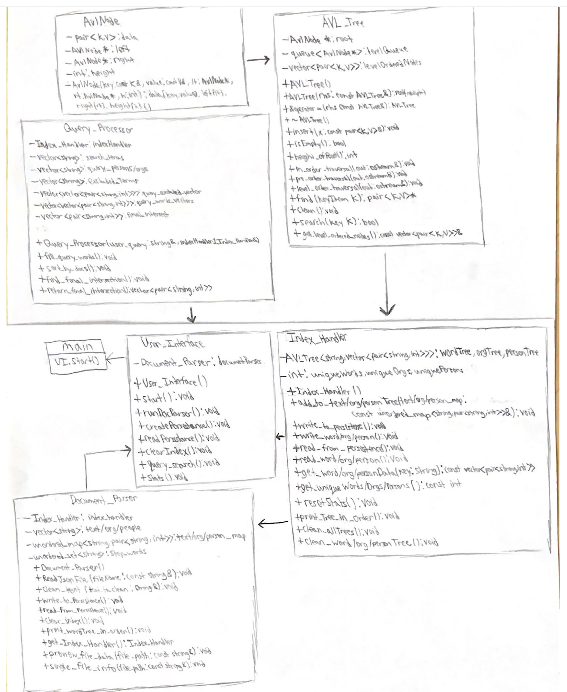 AvlNode
- pair<k,v>: data
- AvlNode *: left
- AvlNode *: right
- int: height
AVL_Tree
- AvlNode *: root
- queue<AvlNode*>: levelQueue
- vector<pair<k,v>>: levelOrderedNodes
+ AVL_Tree()
+ ~AVLTree()
+ insert(x: const pair<k,v>&): void
+ isEmpty(): bool
+ in_order_traversal(out: ostream&): void
+ pre_order_traversal(out: ostream&): void
+ level_order_traversal(out: ostream&): void
+ find(keyItem K): pair<k,v>*
+ clean(): void
+ search(key K): bool
+ get_level_ordered_nodes(): const vector<pair<k,v>>&
Query_Processor
- Index_Handler: indexHandler
- vector<string>: search_terms
- vector<string>: query_persons/orgs
- vector<string>: excluded_terms
- vector<pair<string,int>>: final_intersect
+ sort_by_docs(): void
+ find_final_intersection(): void
+ return_final_intersection(): vector<pair<string,int>>
main
UI.start()
User_Interface
- Document_Parser: documentParser
+ User_Interface()
+ start(): void
+ runDocParser(): void
+ createPersistance(): void
+ readPersistance(): void
+ clearIndex(): void
+ query_search(): void
+ stats(): void
Index_Handler
- AVLTree<string,vector<pair<string,int>>>: wordTree, orgTree, personTree
- int: uniqueWords, uniqueOrgs, uniquePersons
+ Index_Handler()
+ add_to_text/org/person Tree(text/org/person_map:
const unordered_map<string,pair<string,int>>&): void
+ write_to_persistance(): void
+ write_word/org/person(): void
+ read_from_persistance(): void
+ read_word/org/person(): void
+ get_word/org/personData(key: string): const vector<pair<string,int>>
+ get_unique Words/Orgs/Persons(): const int
+ resetStats(): void
+ print_Tree_In_Order(): void
+ clean_allTrees(): void
+ clean_word/org/personTree(): void
Document_Parser
- Index_Handler: index_handler
- vector<string>: text/org/people
- unordered_map<string, pair<string, int>>: text/org/person_map
- unordered_set<string>: stopwords
+ Document_Parser()
+ ReadJsonFile(fileName: const string&): void
+ clean_text(text_to_clean: string&): void
+ write_to_Persistance(): void
+ read_from_Persistance(): void
+ clear_index(): void
+ print_wordTree_In_order(): void
+ get_Index_Handler(): Index_Handler
+ preview_file_data(file_path: const string&): void
+ single_file_info(file_path: const string&): void